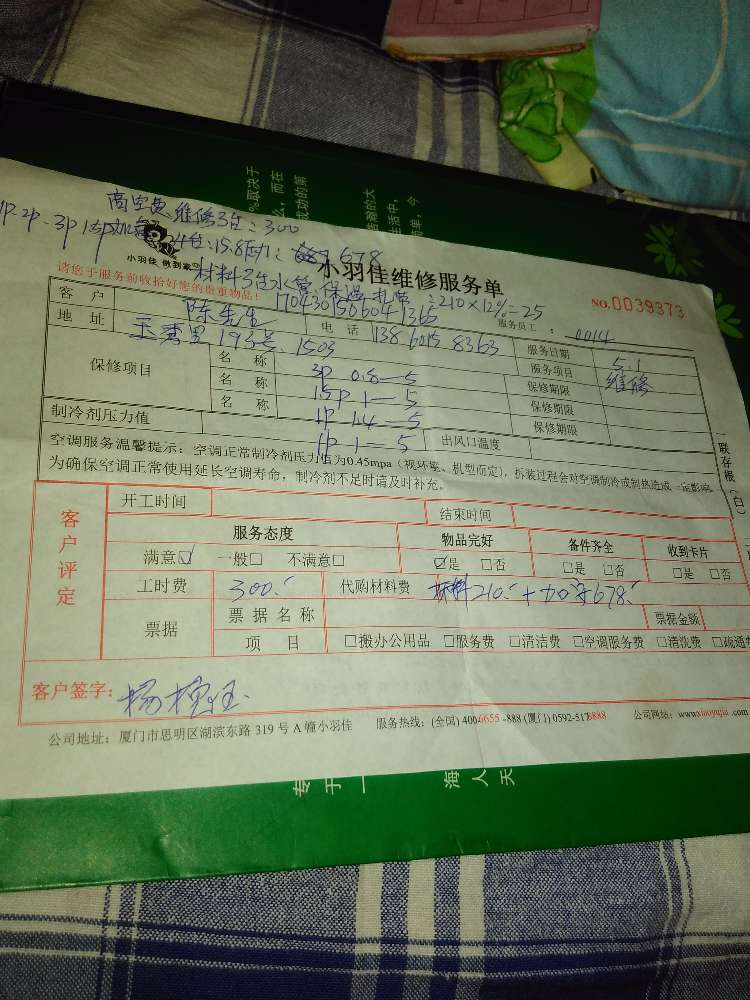 高空费、维修3台:300
1P 2P-3P 1.5P加氟
4台:15.8压力: 678
小羽佳 做到家
材料3台水管、保温、扎带:210×12%-25
小羽佳维修服务单
请您于服务前收拾好您的贵重物品!
1704301506041365
服务员工: 0014
NO.0039373
客 户 陈先生 电 话 13860158363 服务日期 5.1
地 址 玉滨里193号1503 服务项目 维修
保修项目
名 称 3P 0.8—5 保修期限
名 称 1.5P 1—5 保修期限
名 称 1P 1.4—5 保修期限
制冷剂压力值 1P 1—5 出风口温度
空调服务温馨提示:空调正常制冷剂压力值为0.45mpa(视环境、机型而定),拆装过程会对空调制冷或制热造成一定影响,
为确保空调正常使用延长空调寿命,制冷剂不足时请及时补充。
联存根(白)
客户评定
开工时间 结束时间
服务态度 物品完好 备件齐全 收到卡片
满意☑ 一般□ 不满意□ ☑是 □否 □是 □否 □是 □否
工时费 300. 代购材料费 材料210.+加氟678.
票据 票据名称 票据金额
项 目 □搬办公用品 □服务费 □清洁费 □空调服务费 □清洗费 □疏通
客户签字:
公司地址:厦门市思明区湖滨东路 319 号 A 幢小羽佳 服务热线:(全国) 400-6655-888 (厦门) 0592-5178888 公司网站:www.xiaoyujia.com